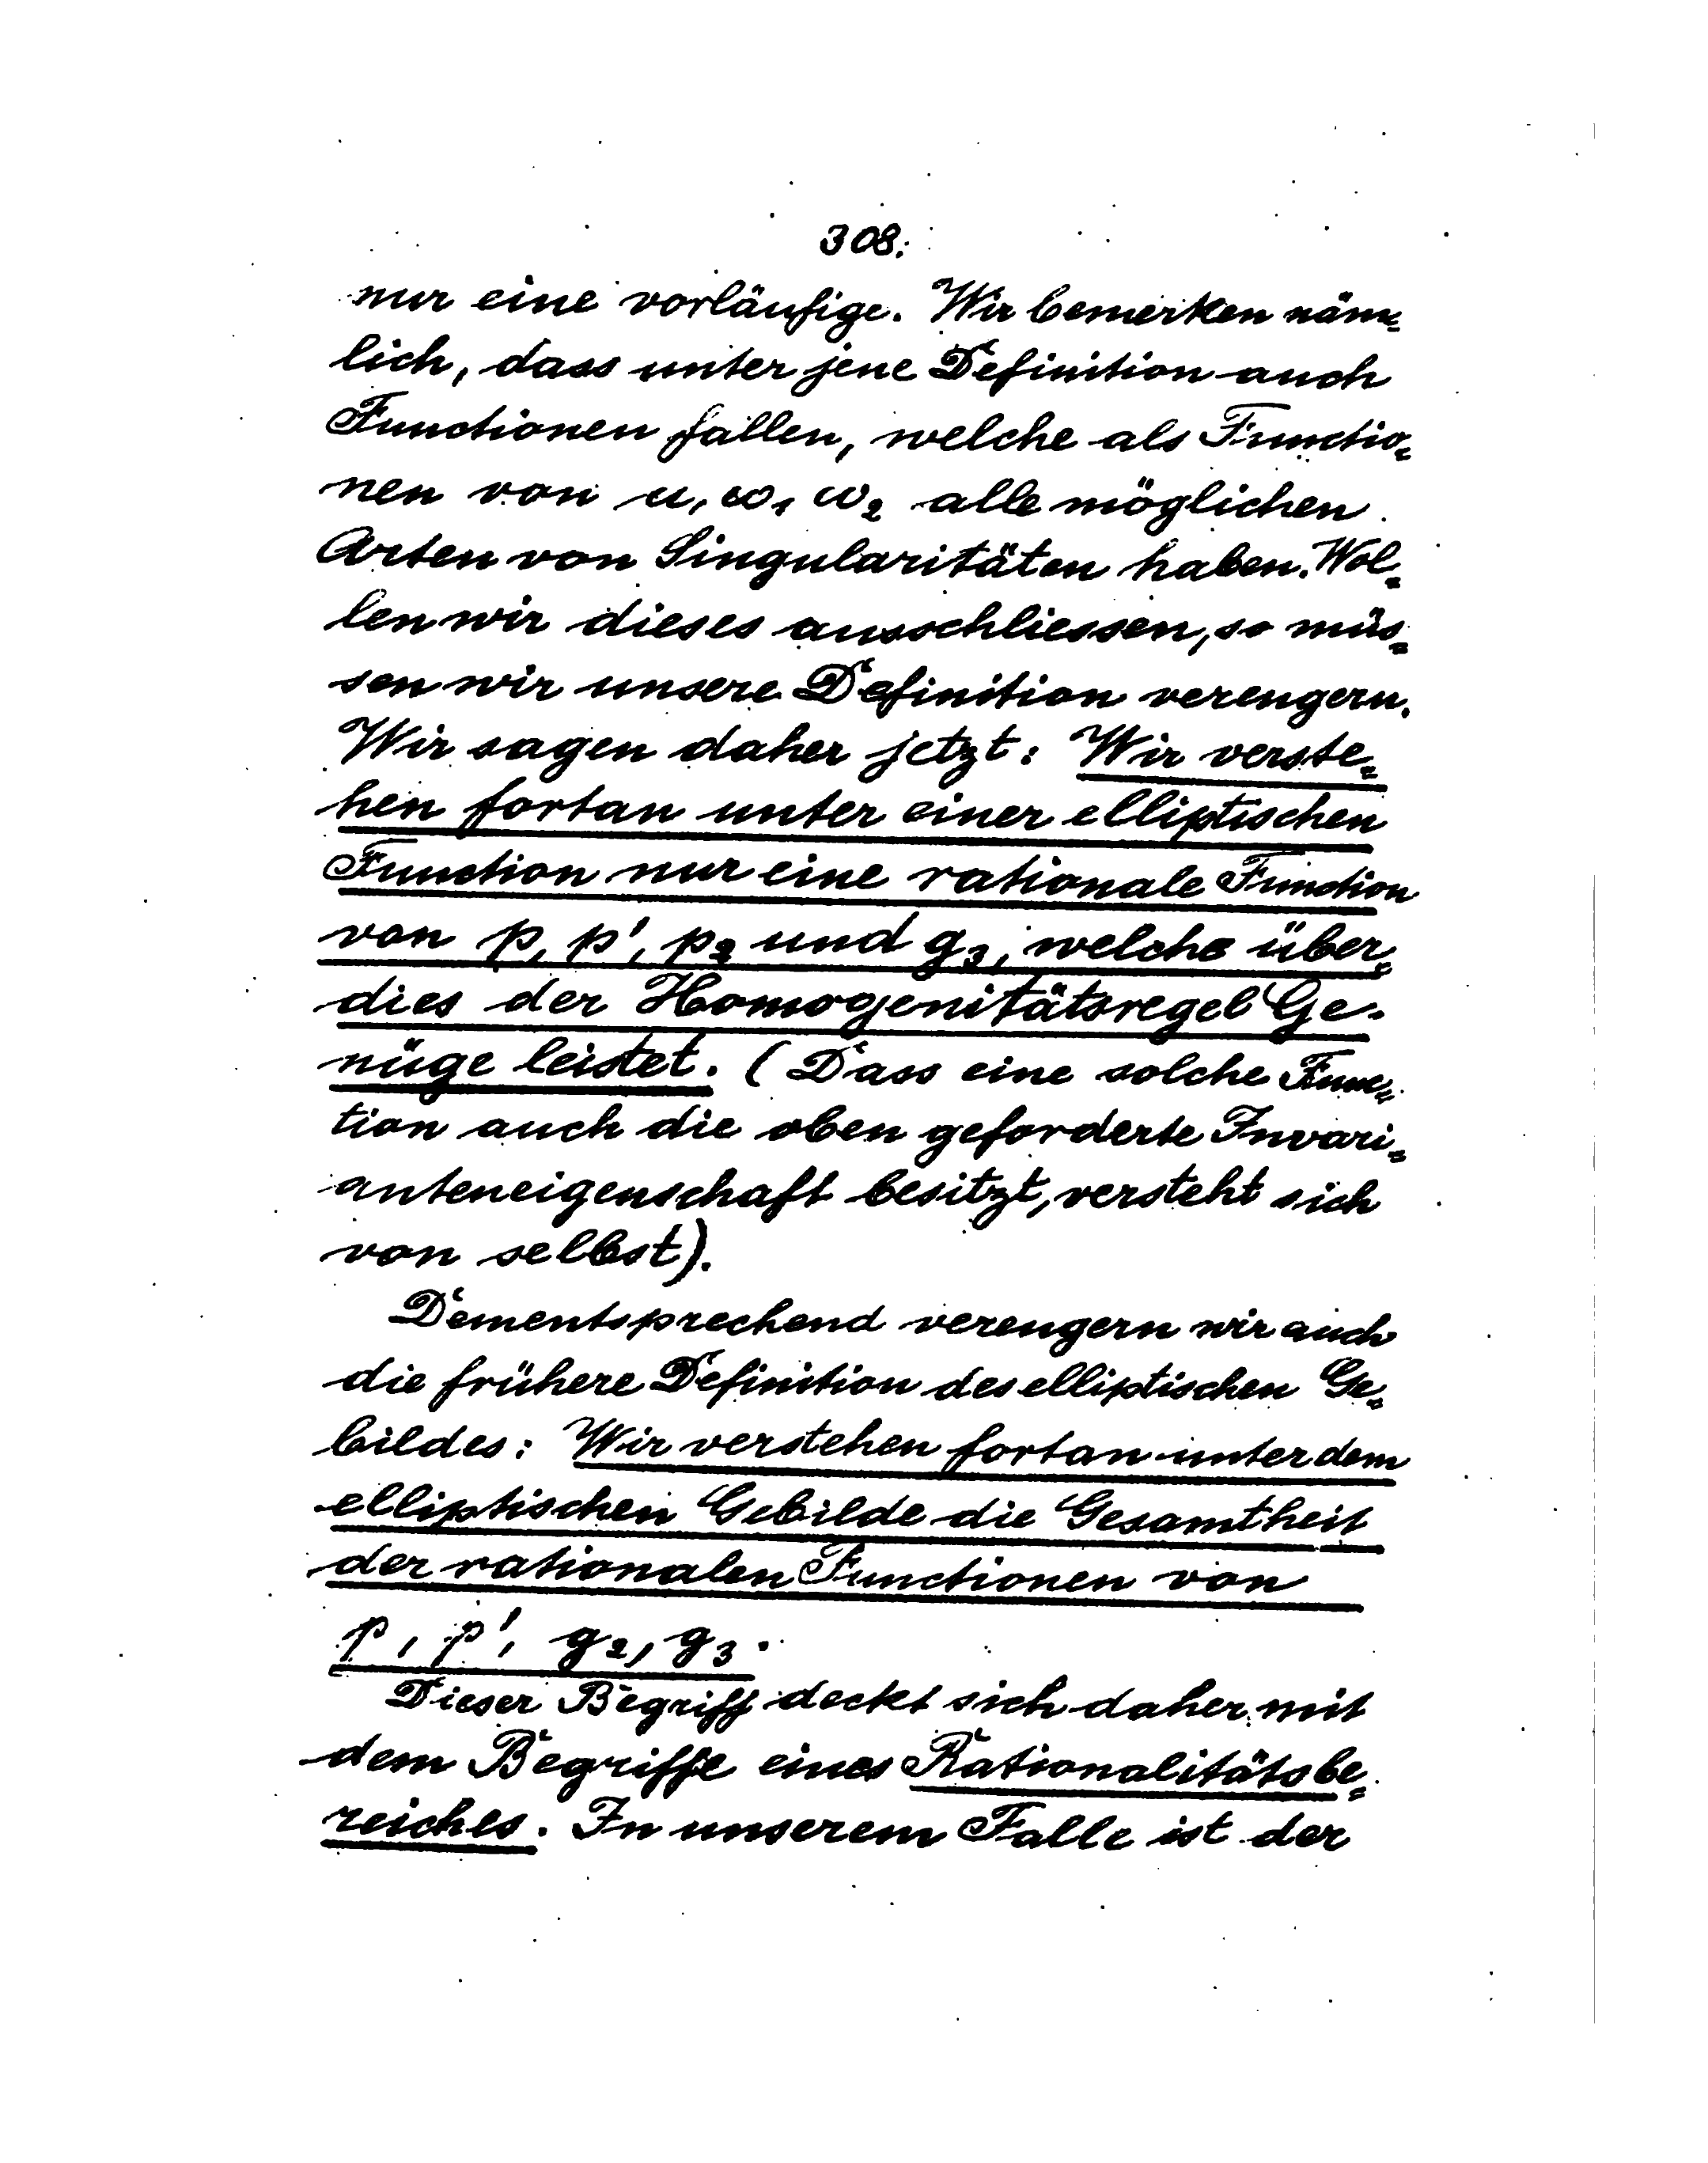 308.
nur eine vorläufige. Wir bemerken näm=
lich, dass unter jene Definition auch
Functionen fallen, welche als Functio=
nen von u, ω₁ ω₂ alle möglichen
Arten von Singularitäten haben. Wol=
len wir dieses ausschliessen, so müs=
sen wir unsere Definition verengern.
Wir sagen daher jetzt: Wir verste=
hen fortan unter einer elliptischen
Function nur eine rationale Function
von p, p', p₂ und g₃, welche über=
dies der Homogenitätsregel Ge-
nüge leistet. (Dass eine solche Func=
tion auch die oben geforderte Invari=
anteneigenschaft besitzt, versteht sich
von selbst).
Dementsprechend verengern wir auch
die frühere Definition des elliptischen Ge=
bildes: Wir verstehen fortan unter dem
elliptischen Gebilde die Gesamtheit
der rationalen Functionen von
p, p', g₂, g₃.
Dieser Begriff deckt sich daher mit
dem Begriffe eines Rationalitätsbe=
reiches. In unserem Falle ist der